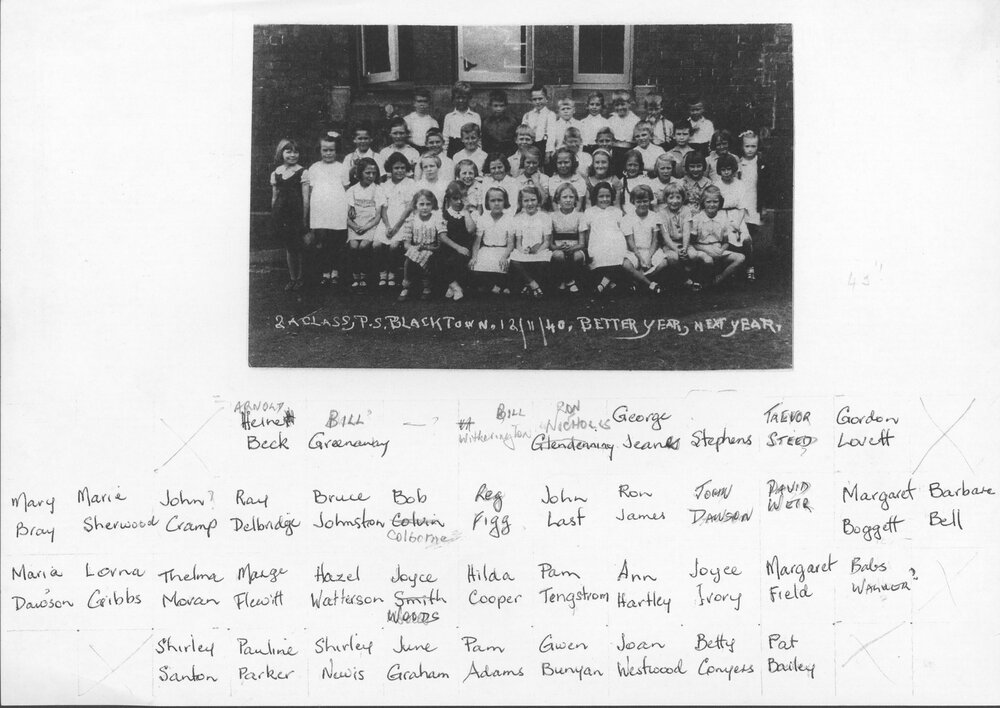 2A CLASS, P.S. BLACKTOWN. 12/11/40. BETTER YEAR, NEXT YEAR.
43"
ARNOLD Heine Beck
BILL? Greenaway
—?
BILL Witherington
RON NICHOLLS Glendenning
George Jeans
Stephens
TREVOR STEED?
Gordon Lovett
Mary Bray
Marie Sherwood
John? Cramp
Ray Delbridge
Bruce Johnston
Bob Colvin Colborne
Reg Figg
John Last
Ron James
JOHN DAWSON
DAVID WEIR
Margaret Boggett
Barbara Bell
Maria Dawson
Lorna Gibbs
Thelma Moran
Marge Flewitt
Hazel Watterson
Joyce Smith WOODS
Hilda Cooper
Pam Tengstrom
Ann Hartley
Joyce Ivory
Margaret Field
Babs WARNOR?
Shirley Santon
Pauline Parker
Shirley Newis
June Graham
Pam Adams
Gwen Bunyan
Joan Westwood
Betty Conyers
Pat Bailey